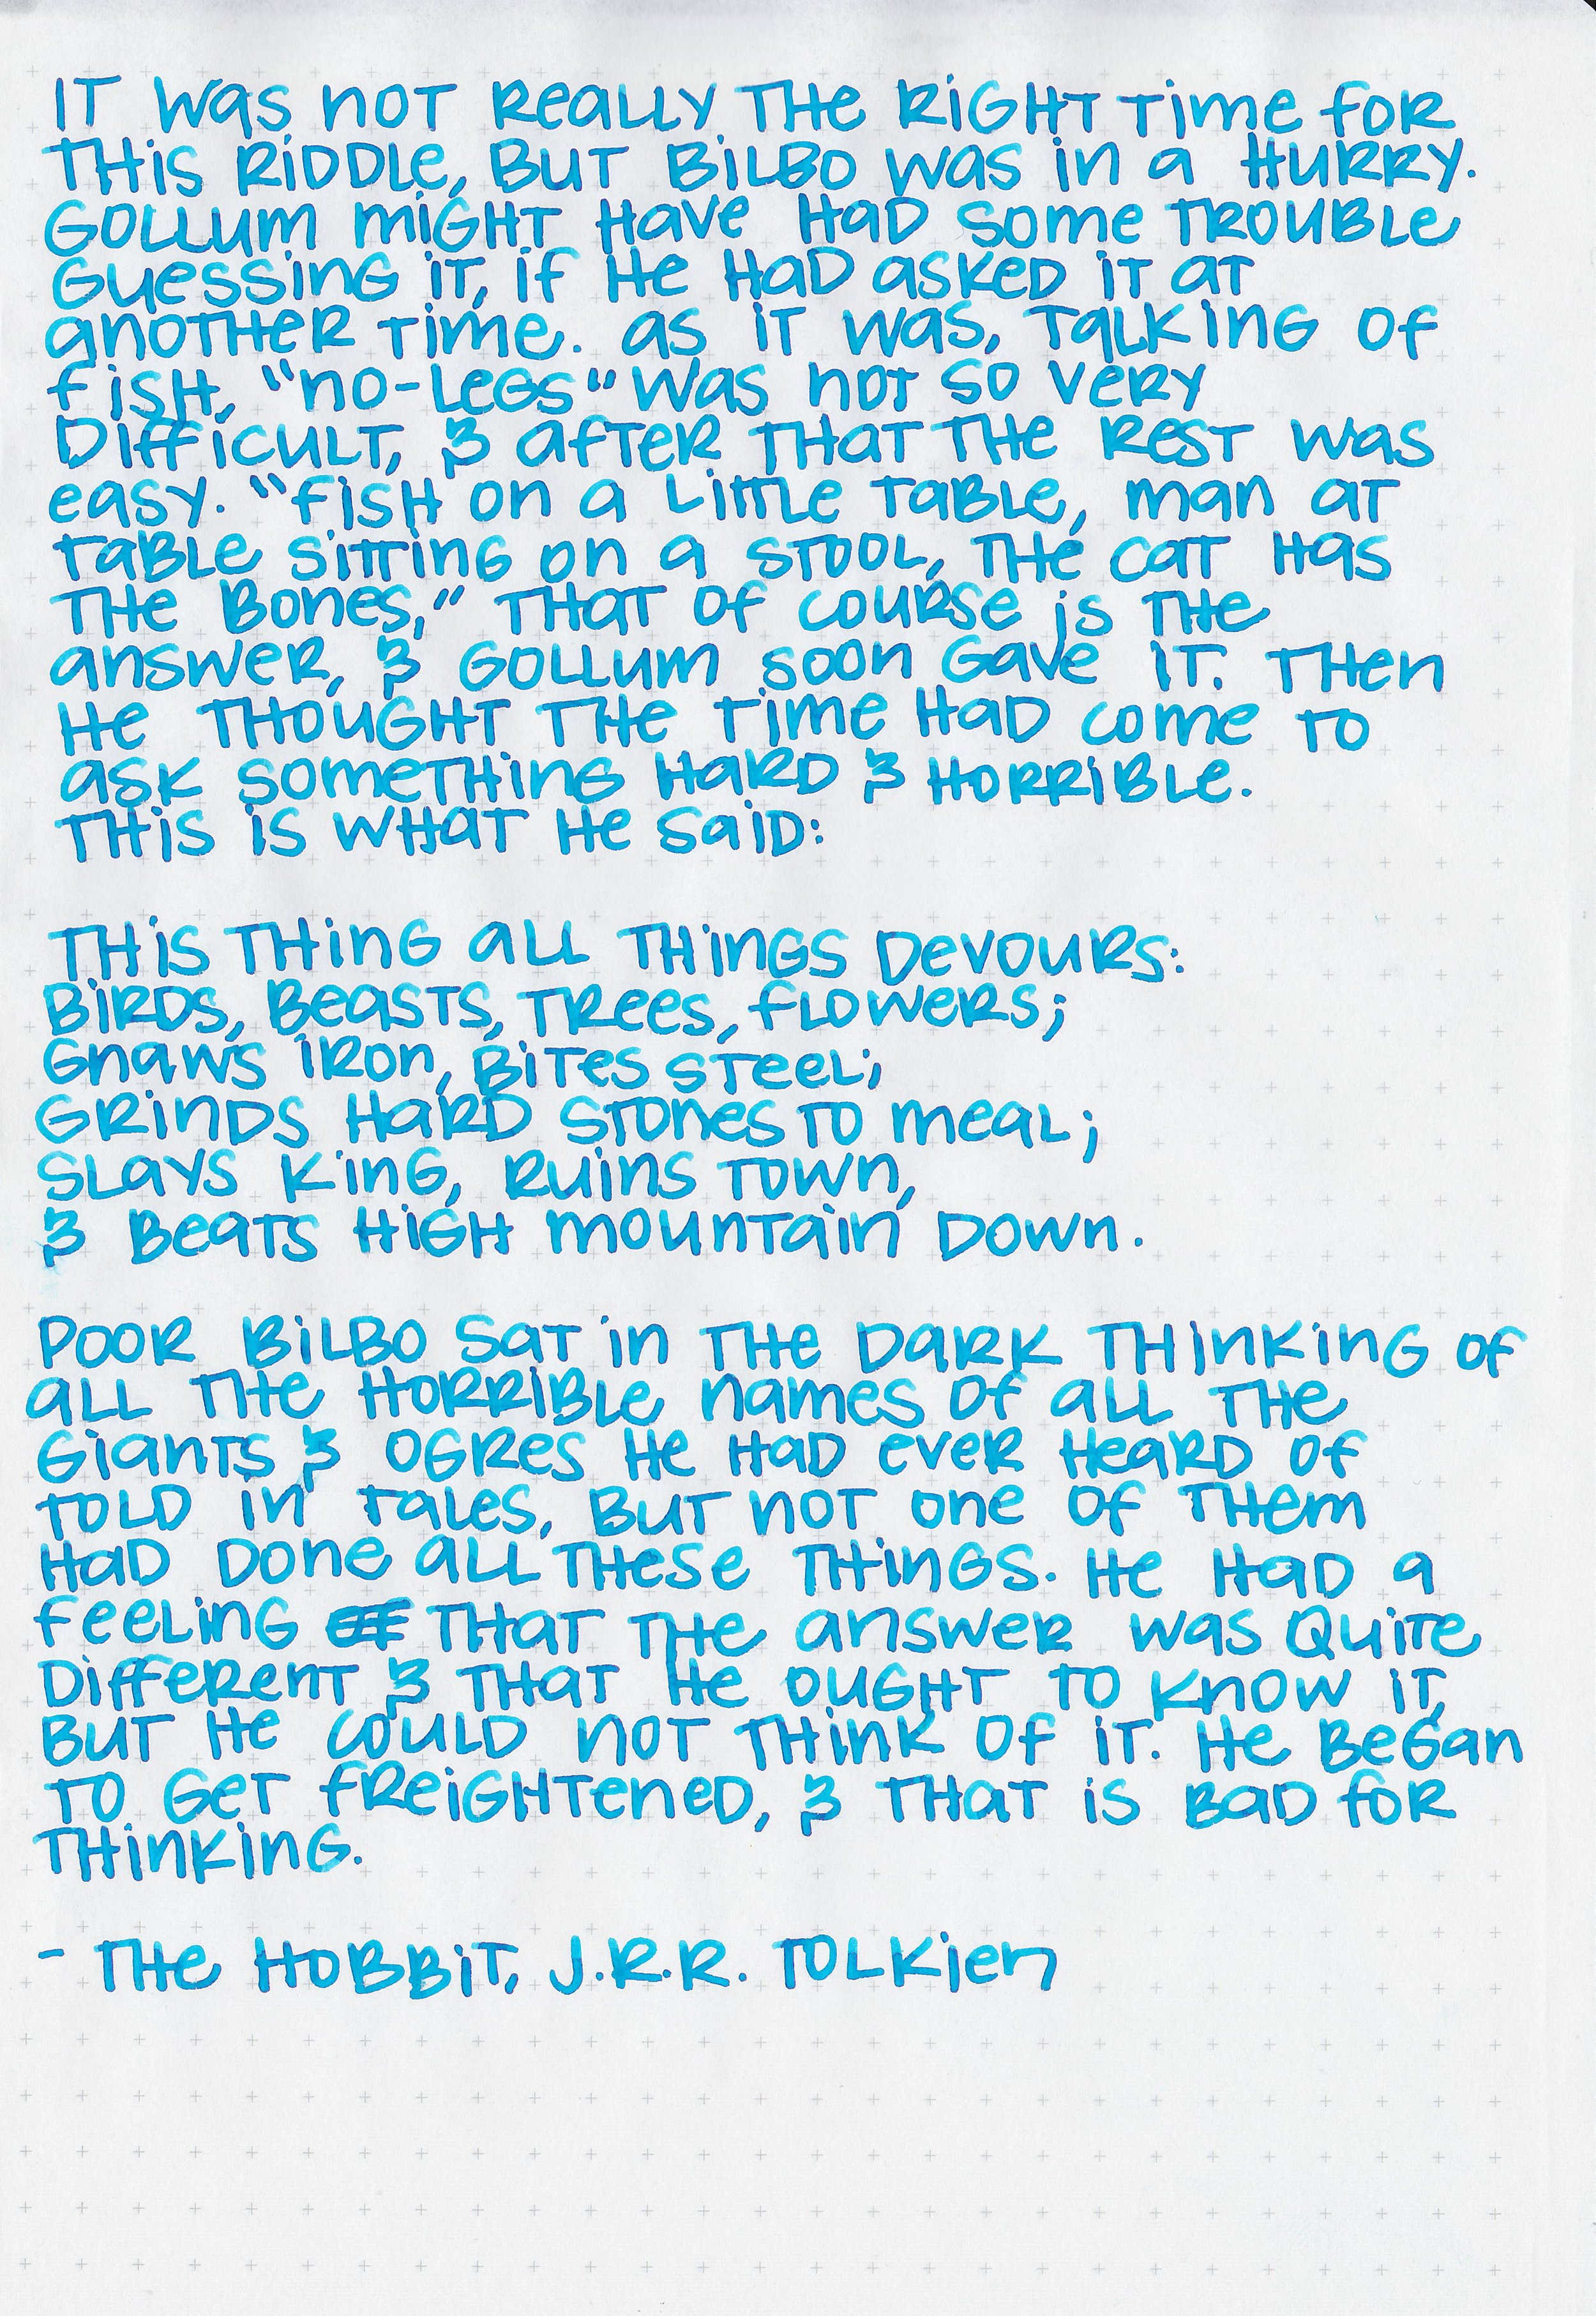 It was not really the right time for
this riddle, but Bilbo was in a hurry.
Gollum might have had some trouble
guessing it, if he had asked it at
another time. As it was, talking of
fish, "no-legs" was not so very
difficult, & after that the rest was
easy. "Fish on a little table, man at
table sitting on a stool, the cat has
the bones," that of course is the
answer, & Gollum soon gave it. Then
he thought the time had come to
ask something hard & horrible.
This is what he said:

This thing all things devours:
Birds, beasts, trees, flowers;
Gnaws iron, bites steel;
Grinds hard stones to meal;
Slays king, ruins town,
& beats high mountain down.

Poor Bilbo sat in the dark thinking of
all the horrible names of all the
giants & ogres he had ever heard of
told in tales, but not one of them
had done all these things. He had a
feeling that the answer was quite
different & that he ought to know it,
but he could not think of it. He began
to get freightened, & that is bad for
thinking.

- The Hobbit, J.R.R. Tolkien